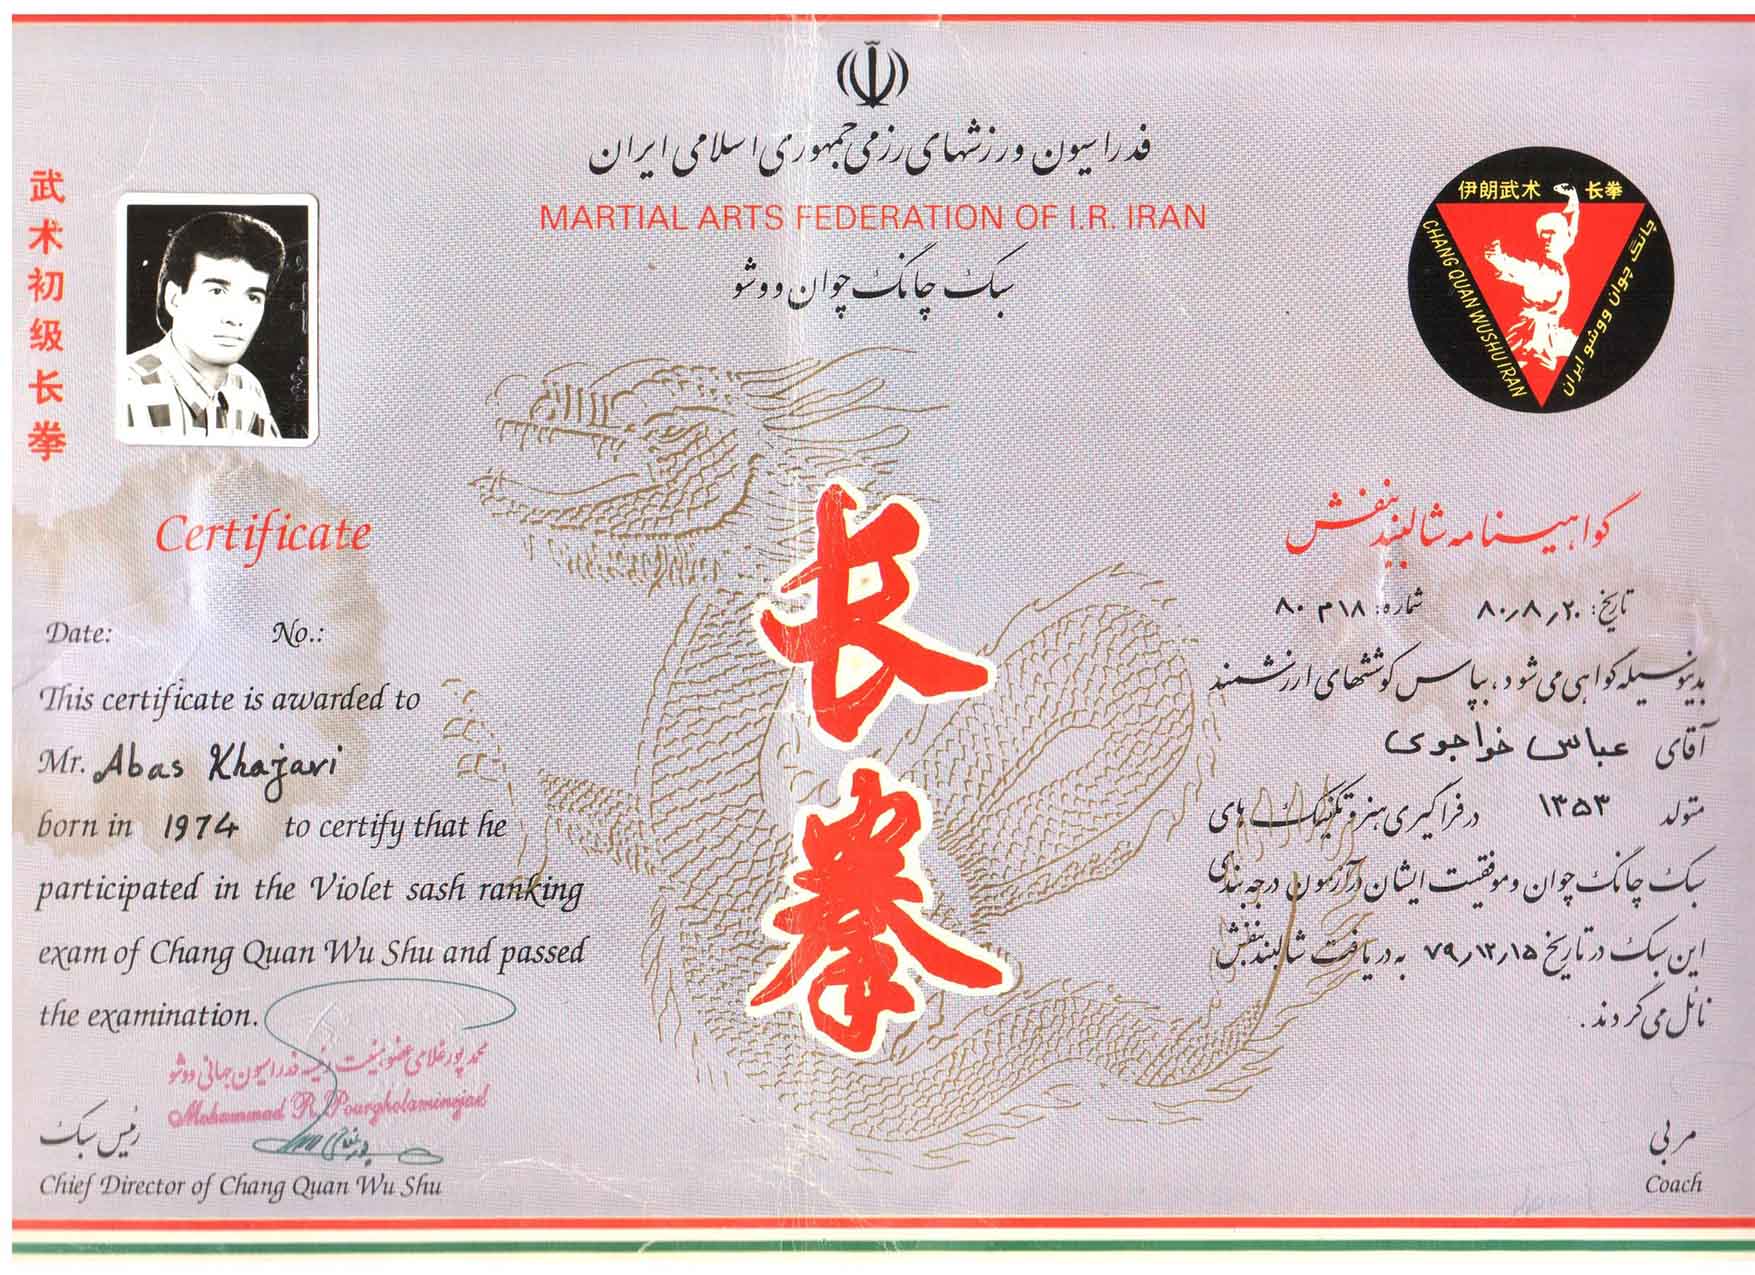 فدراسیون ورزشهای رزمی جمهوری اسلامی ایران
MARTIAL ARTS FEDERATION OF I.R. IRAN
سبک چانگ چوان ووشو
武术初级长拳
伊朗武术 长拳
CHANG QUAN WUSHU IRAN
چانگ چوان ووشو ایران
长拳
Certificate
Date: No.:
This certificate is awarded to
Mr. Abas Khajavi
born in 1974 to certify that he
participated in the Violet sash ranking
exam of Chang Quan Wu Shu and passed
the examination.
محمد پورغلامی عضو هیئت رئیسه فدراسیون جهانی ووشو
Mohammad R. Pourgholaminejad
رئیس سبک
Chief Director of Chang Quan Wu Shu
گواهینامه شالبند بنفش
تاریخ: ۸۰٫۸٫۲۰ شماره: ۱۸م۸۰
بدینوسیله گواهی می شود، بپاس کوششهای ارزشمند
آقای عباس خواجوی
متولد ۱۳۵۳ در فراگیری هنر و تکنیک های
سبک چانگ چوان و موفقیت ایشان در آزمون درجه بندی
این سبک در تاریخ ۷۹٫۱۲٫۱۵ به دریافت شالبند بنفش
نائل می گردند.
مربی
Coach